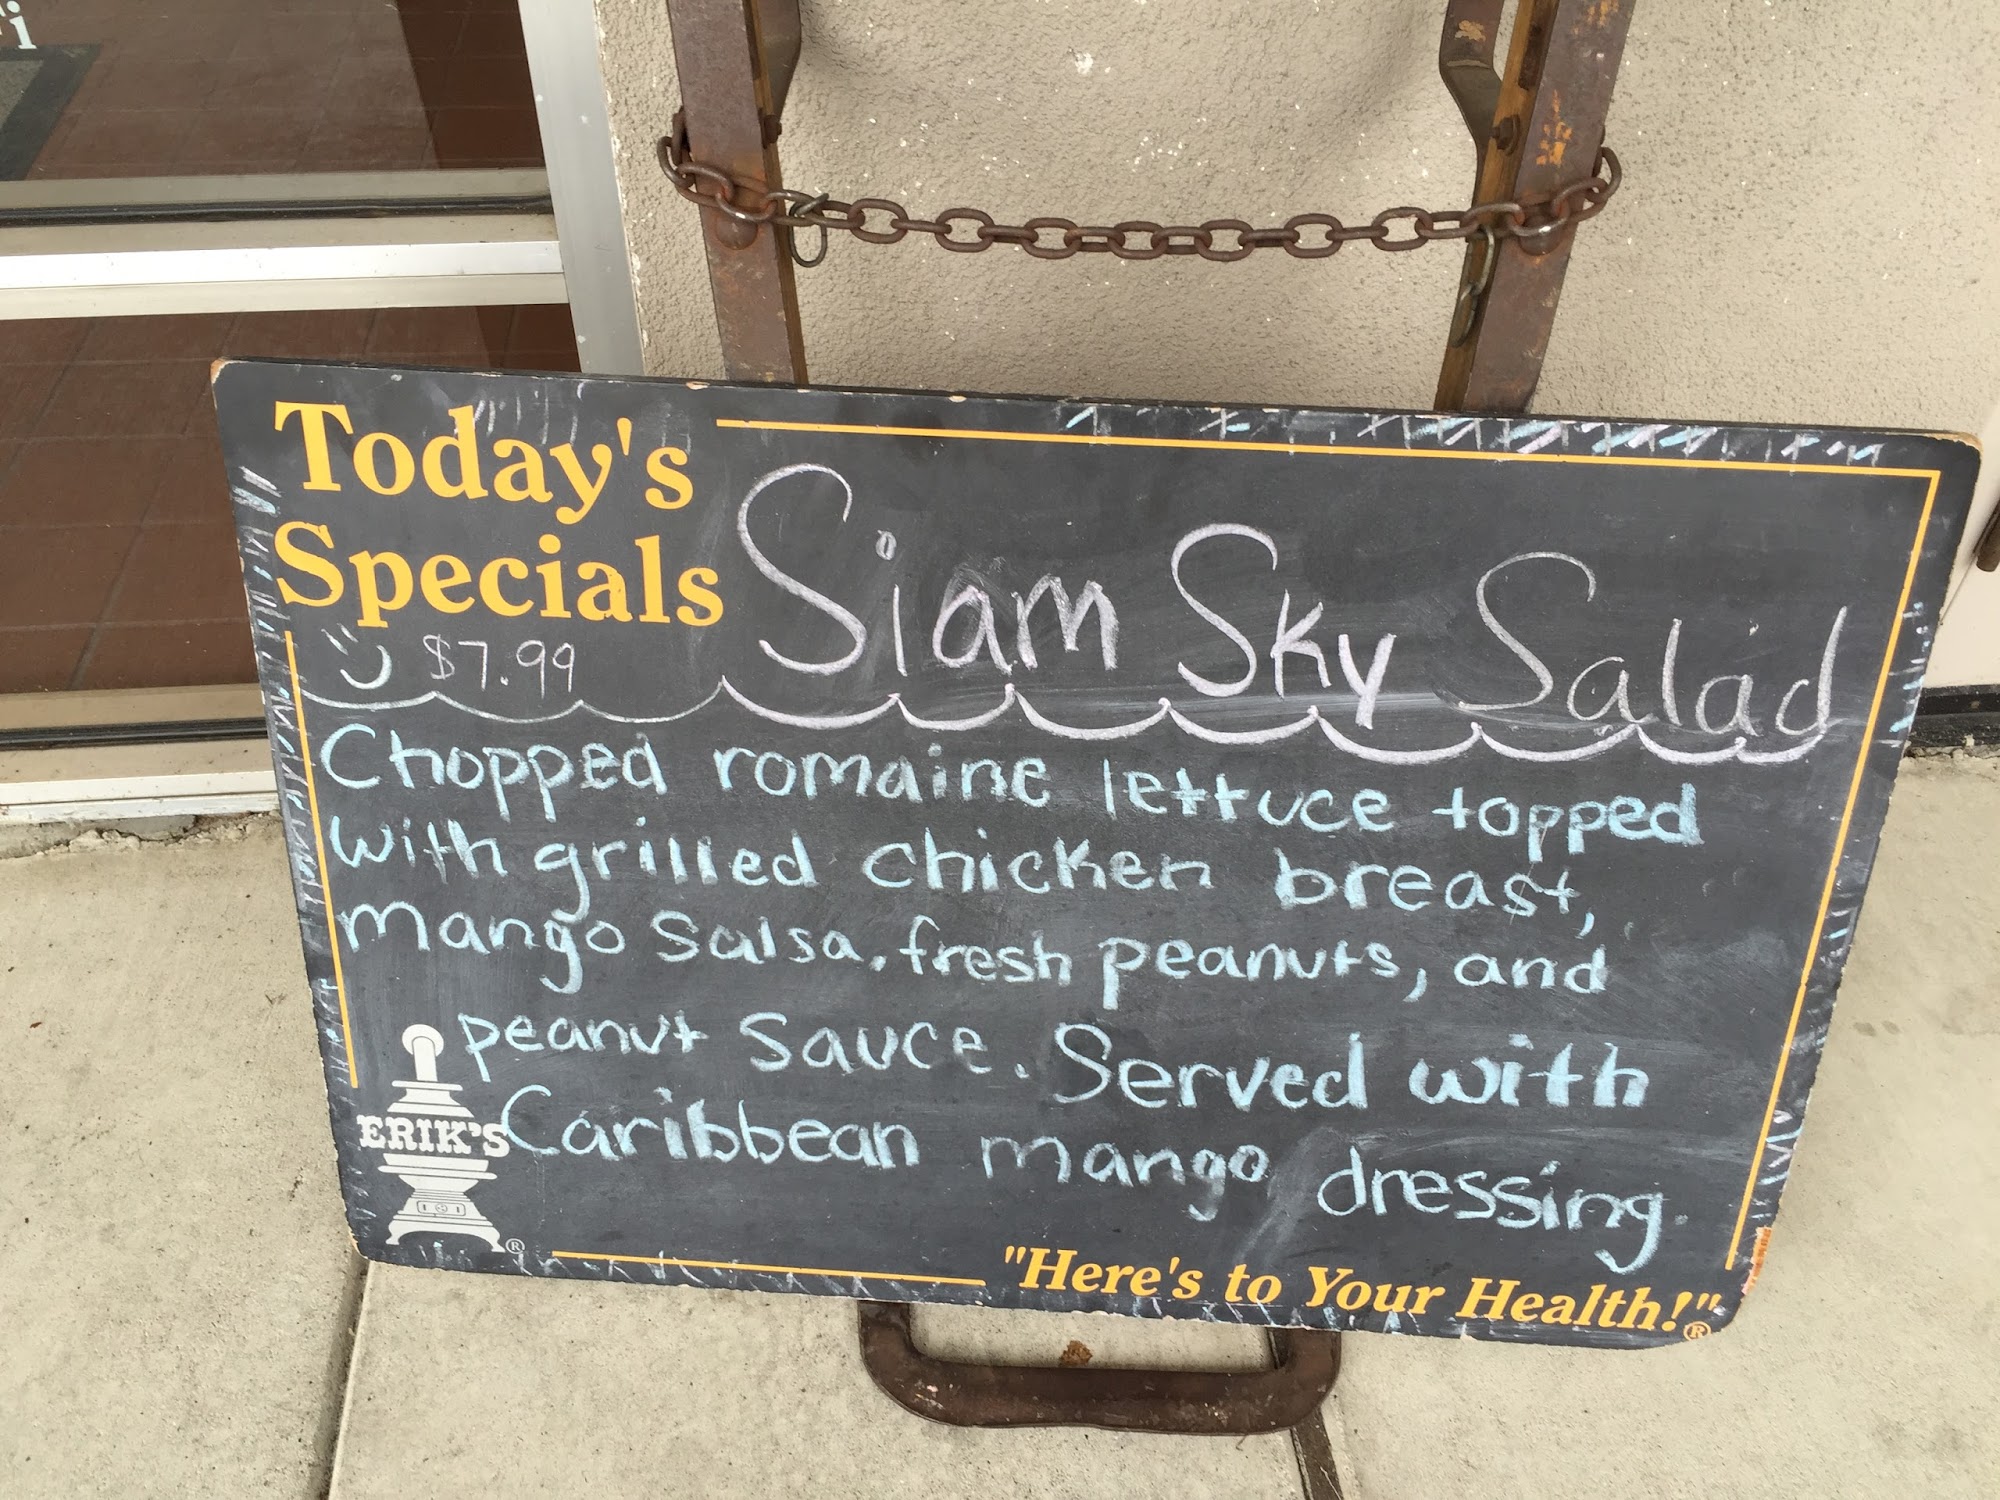 Today's
Specials
$7.99
Siam Sky Salad
Chopped romaine lettuce topped
with grilled chicken breast,
mango salsa, fresh peanuts, and
peanut sauce. Served with
Caribbean mango dressing.
ERIK'S
®
"Here's to Your Health!"®